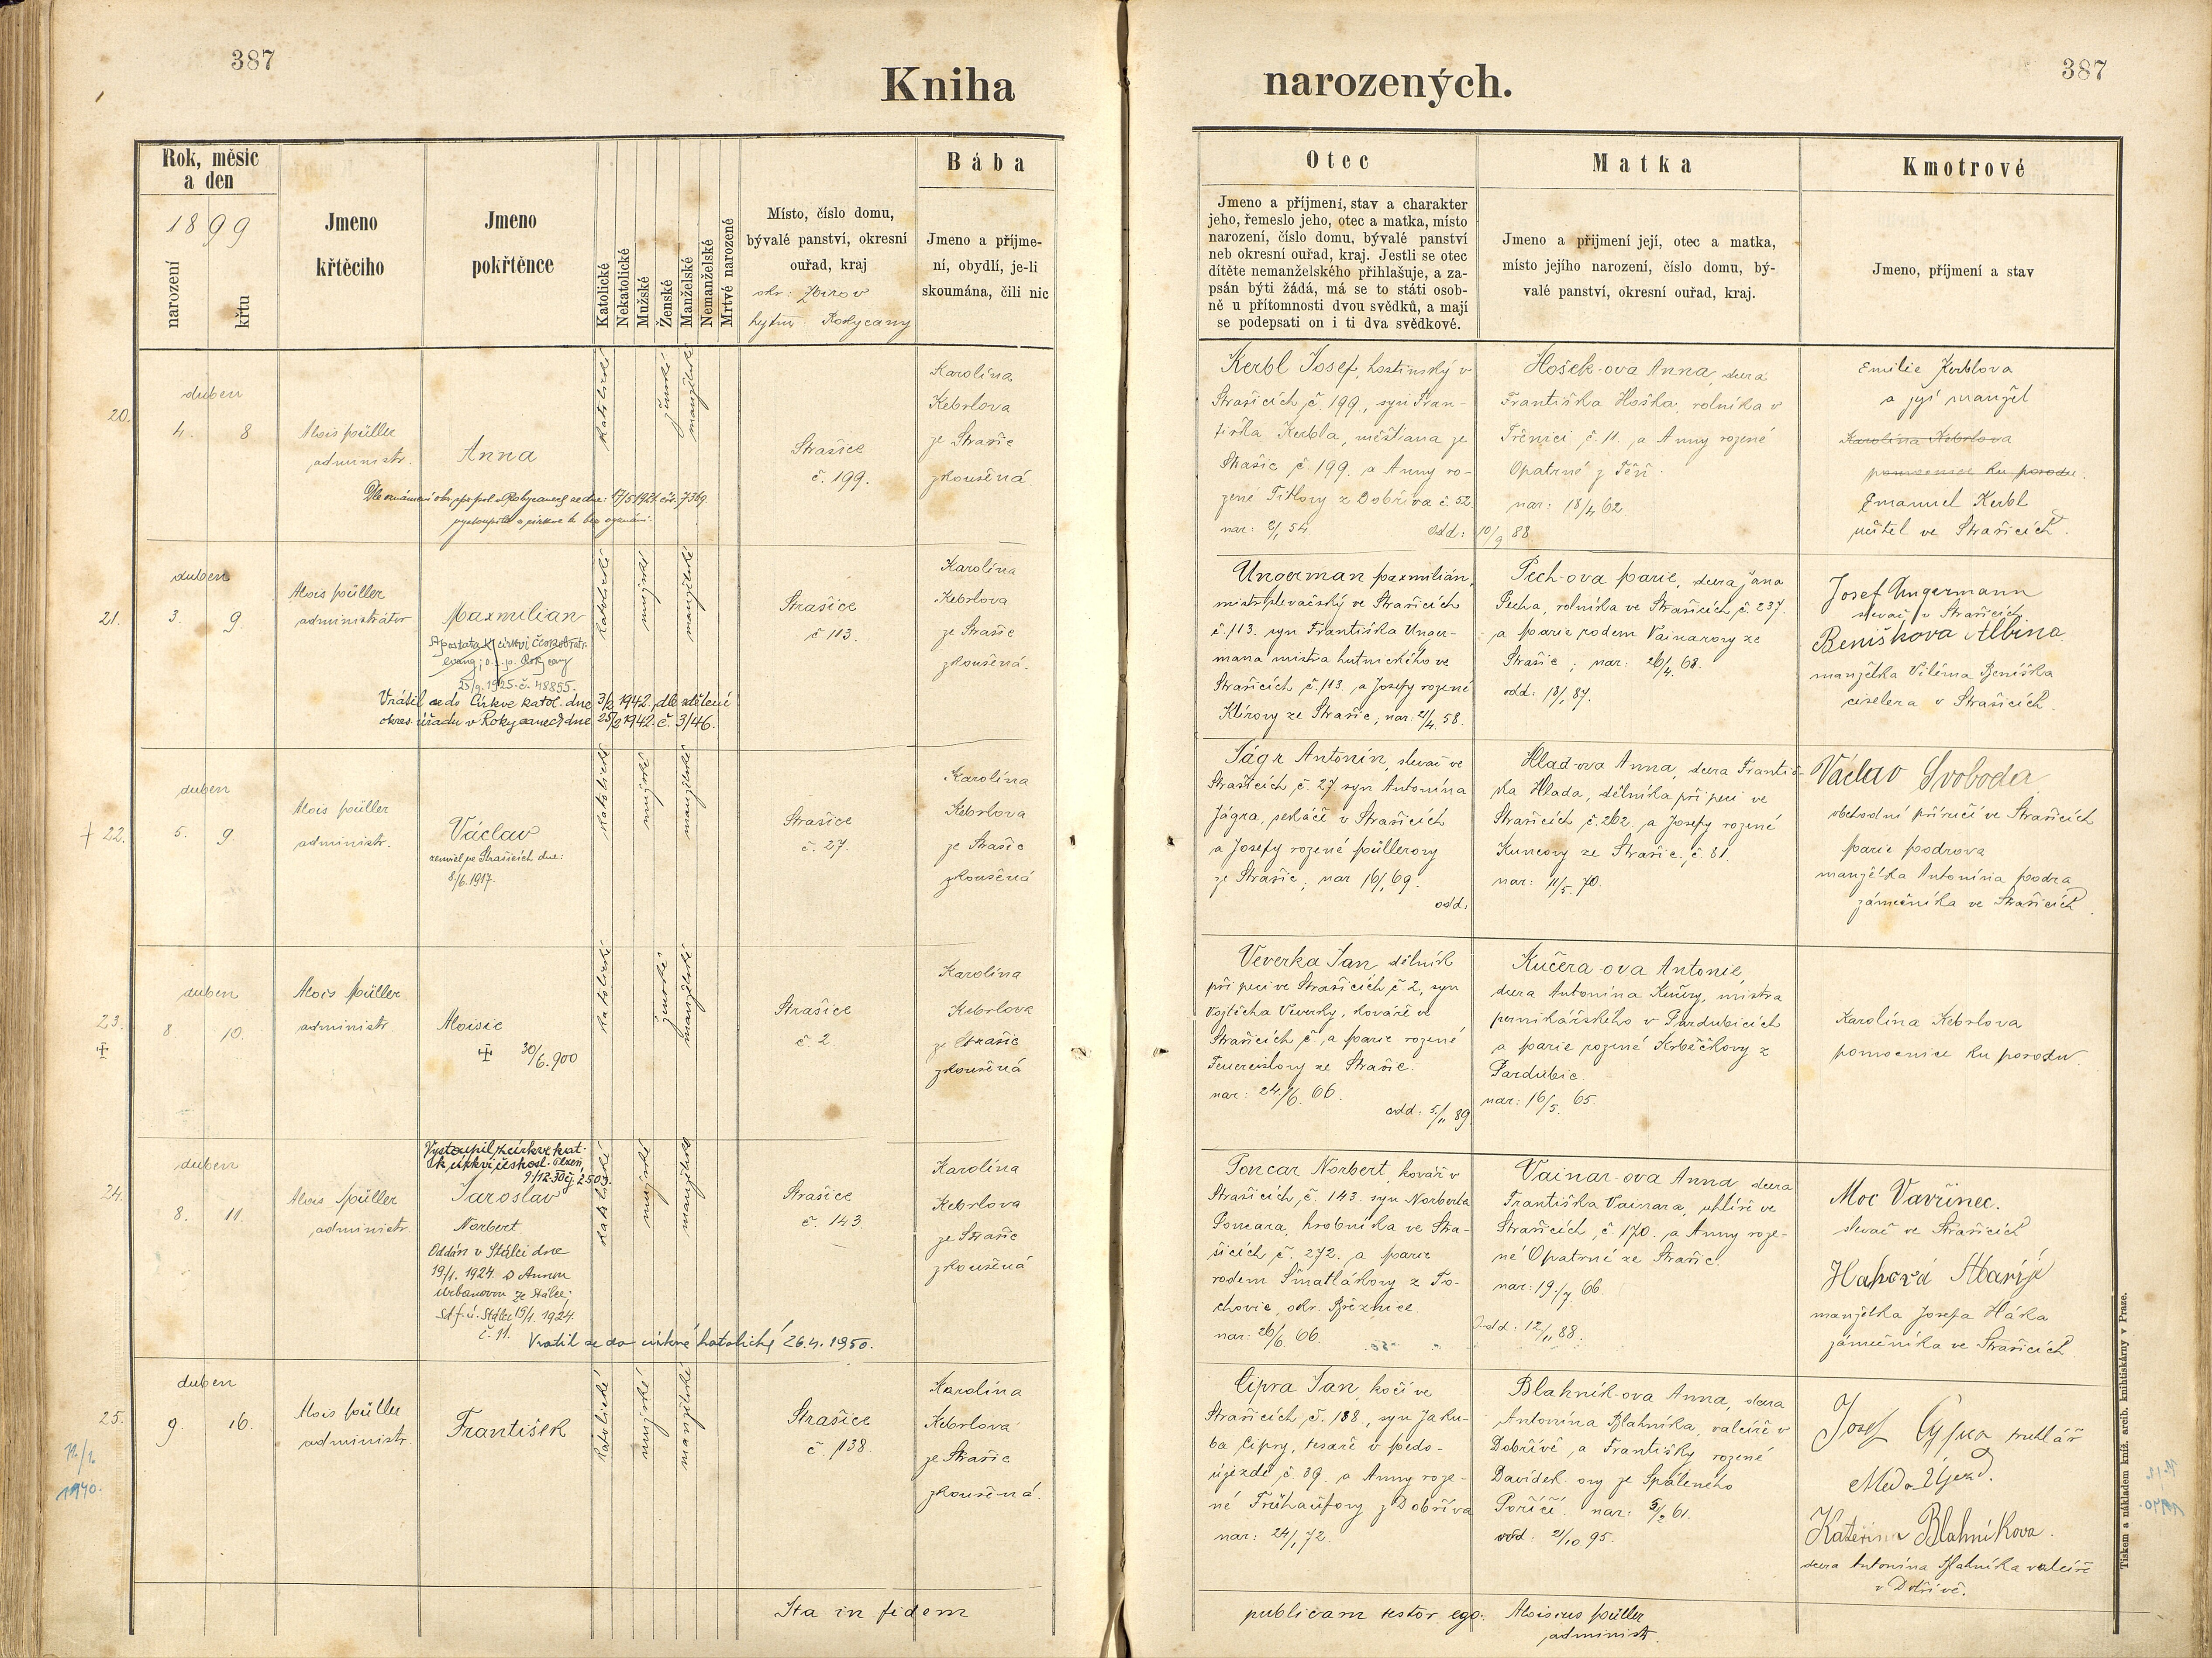 387
Kniha
Rok, měsíc
a den
1899
narození
křtu
Jmeno
křtěcího
Jmeno
pokřtěnce
Katolické
Nekatolické
Mužské
Ženské
Manželské
Nemanželské
Mrtvé narozené
Místo, číslo domu,
bývalé panství, okresní
ouřad, kraj
okr: Zbirov
hejtm. Rokycany
Bába
Jmeno a příjme-
ní, obydlí, je-li
skoumána, čili nic
20.
duben
4. 8
Alois Müller
administr.
Anna
katolické
ženské
manželské
Strašice
č. 199.
Karolina
Kebrlova
ze Strašic
zkoušená.
21.
duben
3. 9.
Alois Müller
administrátor
Maxmilian
25/9. 1925. č. 48855.
Vrátil se do Církve katol. dne 3/2 1942 dle sdělení
okres. úřadu v Rokycanech dne 25/2 1942. č. 3/46.
katolické
mužské
manželské
Strašice
č 113.
Karolina
Kebrlova
ze Strašic
zkoušená.
+ 22.
duben
5. 9.
Alois Müller
administr.
Václav
zemřel ve Strašicích dne:
8./6. 1917.
katolické
mužské
manželské
Strašice
č. 27.
Karolina
Kebrlova
ze Strašic
zkoušená
23.
duben
8. 10.
Alois Müller
administr.
Aloisie
30/6. 900
katolické
ženské
manželské
Strašice
č. 2.
Karolina
Kebrlova
ze Strašic
zkoušená
24.
duben
8. 11.
Alois Müller
administr.
Vystoupil z církve kat.
k církvi českosl. Plzeň,
Jaroslav
Norbert
Oddán v Stálci dne
19/1. 1924. s Annou
Urbanovou ze Stálce;
č. 11.
Vrátil se do církve katolické 26.4. 1950.
katolické
mužské
manželské
Strašice
č. 143.
Karolina
Kebrlova
ze Strašic
zkoušená
25.
duben
9. 16.
Alois Müller
administr.
František
katolické
mužské
manželské
Strašice
č. 138.
Karolina
Kebrlova
ze Strašic
zkoušená.
1940.
Ita in fidem
387
narozených.
Otec
Jmeno a příjmení, stav a charakter
jeho, řemeslo jeho, otec a matka, místo
narození, číslo domu, bývalé panství
neb okresní ouřad, kraj. Jestli se otec
dítěte nemanželského přihlašuje, a za-
psán býti žádá, má se to státi osob-
ně u přítomnosti dvou svědků, a mají
se podepsati on i ti dva svědkové.
Matka
Jmeno a příjmení její, otec a matka,
místo jejího narození, číslo domu, bý-
valé panství, okresní ouřad, kraj.
Kmotrové
Jmeno, příjmení a stav
Kerbl Josef, hostinský v
Strašicích č. 199., syn Fran-
tiška Kerbla, měštana ze
Strašic č. 199. a Anny ro-
zené Titlovy z Dobříva č. 52.
odd: 10/9 88
Hošek-ova Anna, dcera
Františka Hoška, rolníka v
Třenici č. 11. a Anny rozené
Opatrné z Těň.
nar: 18/4 62.
Emilie Kerblova
a její manžel
Karolina Kebrlova
pomocnice ku porodu.
Emanuel Kerbl
učitel ve Strašicích.
Ungerman Maxmilián,
mistr slevačský ve Strašicích
č. 113. syn Františka Unger-
mana mistra hutnického ve
Strašicích č. 113. a Josefy rozené
Klírovy ze Strašic, nar: 21/4. 58.
Pech-ova Marie, dcera Jana
Pecha, rolníka ve Strašicích, č. 237.
a Marie rodem Vainarovy ze
Strašic; nar: 26/4. 68.
odd: 18/1 87.
Josef Ungermann
slevač v Strašicích
Benišková Albina
manželka Viléma Beniška
ciselera v Strašicích.
Jágr Antonín, slevač ve
Strašicích, č. 27 syn Antonína
Jágra, sekáče v Strašicích
a Josefy rozené Müllerovy
ze Strašic; nar 16/1 69.
odd:
Hlad-ova Anna, dcera Františ-
ka Hlada, dělníka při peci ve
Strašicích, č. 262. a Josefy rozené
Kuncovy ze Strašic, č 81.
nar: 11/5. 70.
Václav Svoboda
obchodní příručí ve Strašicích
Marie Modrova
manželka Antonína Modra
zámečníka ve Strašicích.
Veverka Jan dělník
při peci ve Strašicích č. 2., syn
Vojtěcha Veverky, kováře ve
Strašicích č. a Marie rozené
ze Strašic.
nar: 24/6. 66.
odd: 5/11 89.
Kučera-ova Antonie,
dcera Antonína Kučery, mistra
perníkářského v Pardubicích
a Marie rozené Krběčkovy z
Pardubic.
nar: 16/5. 65.
Karolina Kebrlova
pomocnice ku porodu
Poncar Norbert, kovář v
Strašicích, č. 143. syn Norberta
Poncara, hrobníka ve Stra-
šicích č. 272. a Marie
rodem Šmatlákovy z To-
chovic, okr. Březnice
nar: 26/6 66.
Vainar-ova Anna dcera
Františka Vainara, uhlíře ve
Strašicích, č. 170. a Anny roze-
né Opatrné ze Strašic.
nar: 19./7 66.
Odd: 12/11 88.
Moc Vavřinec.
slevač ve Strašicích
Haková Marije
manželka Josefa Háka
zámečníka ve Strašicích
Cipra Jan, kočí ve
Strašicích, č. 138., syn Jaku-
ba Cipry, tesaře v Medo-
újezdě č. 39. a Anny roze-
né Frühaufovy z Dobříva
nar: 24/1 72.
Blahník-ova Anna, dcera
Antonína Blahníka, valcíře v
Dobřívě, a Františky rozené
Davídek-ovy ze Spáleného
Poříčí. nar: 5/2 61.
odd: 21/10 95.
Josef Cypra truhlář
Medo-Újezd.
Kateřina Blahníkova.
dcera Antonína Blahníka valcíře
v Dobřívě.
publicam testor ego: Aloisius Müller
administr.
Tiskem a nákladem kníž. arcib. knihtiskárny v Praze.